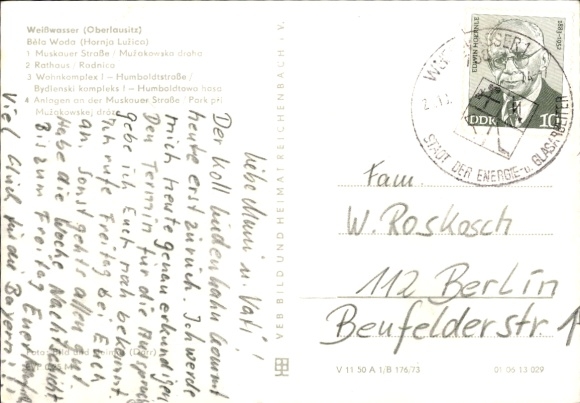 Weißwasser (Oberlausitz)
Běła Woda (Hornja Łužica)
1 Muskauer Straße / Mužakowska droha
2 Rathaus / Radnica
3 Wohnkomplex I – Humboldtstraße /
Bydlenski kompleks I – Humboldtowa hasa
4 Anlagen an der Muskauer Straße / Park při
Mužakowskej dróze
Liebe Mutti u. Vati!
Der Koll. Lindenhahn kommt
heute erst zurück. Ich werde
mich heute genau erkundigen
Den Termin für die
gebe ich Euch noch bekannt.
Ich rufe Freitag bei Euch
an. Sonst geht's allen gut
Habe die Woche Nachtschicht
Bis zum Freitag Euer
Viel Glück für die Bayern!!!
VEB BILD UND HEIMAT REICHENBACH i. V.
Foto: Bild und Heimat (Darr)
V 11 50 A 1/B 176/73
01 06 13 029
EDWIN HOERNLE
1883-1952
DDR
10
STADT DER ENERGIE- u. GLASARBEITER
Fam.
W. Roskosch
112 Berlin
Beufelderstr. 1